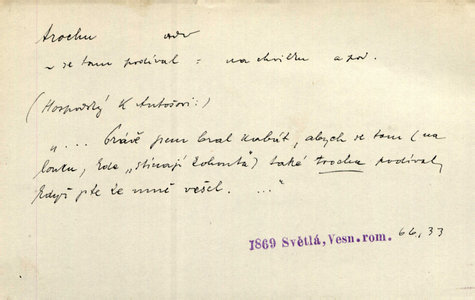 trochu adv
~ se tam podíval = na chvilku a pod.
(Hospodský k Antošovi:)
"... Právě jsem bral kabát, abych se tam (na
louku, kde "stínají kohouta") také trochu podíval,
když jste ke mně vešel. ..."
1869 Světlá, Vesn. rom. 66, 33